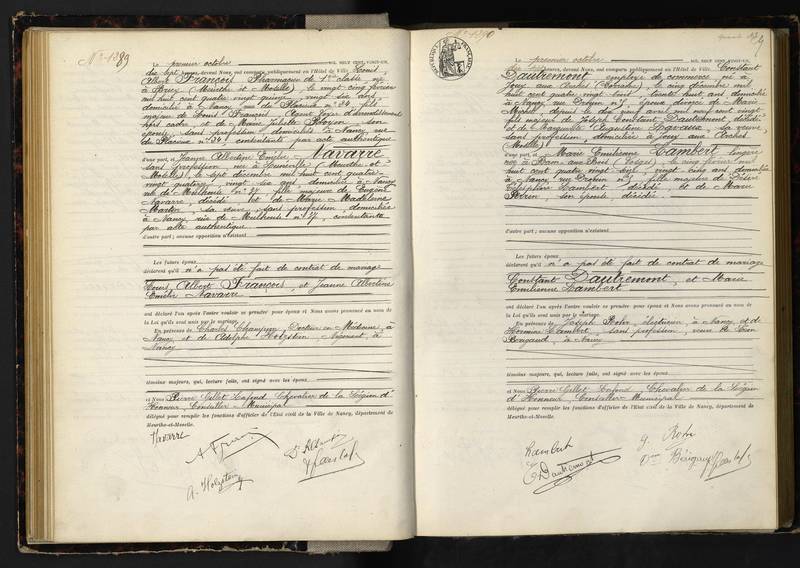 N° 1389
Le premier octobre mil neuf cent vingt-un,
dix sept heures, devant Nous, ont comparu publiquement en l'Hôtel de Ville: Louis,
Albert François Pharmacien de 1ère classe, né
à Briey (Meurthe et Moselle), le vingt cinq février
mil huit cent quatre vingt quinze, vingt six ans,
domicilié à Nancy, rue de Placieux n° 34, fils
majeur de Louis François, Agent Voyer d'arrondissement
hors cadre, et de Marie Juliette Royon, son
épouse, sans profession, domiciliés à Nancy, rue
de Placieux n° 34, consentants par acte authentique
d'une part, et Jeanne Albertine Emélie Navarre
sans profession, née à Lunéville (Meurthe et
Moselle), le sept décembre mil huit cent quatre-
vingt quatorze, vingt six ans, domiciliée à Nancy
rue de Mulhouse n° 27, fille majeure de Eugène
Navarre, décédé, et de Marie Madeleine
Martin, sa veuve, sans profession, domiciliée
à Nancy, rue de Mulhouse n° 27, consentante
par acte authentique
d'autre part; aucune opposition n'existant
Les futurs époux
déclarent qu'il n'a pas été fait de contrat de mariage
Louis, Albert François, et Jeanne Albertine
Emélie Navarre
ont déclaré l'un après l'autre vouloir se prendre pour époux et Nous avons prononcé au nom de
la Loi qu'ils sont unis par le mariage.
En présence de Charles Champion, Docteur en Médecine, à
Nancy et de Adolphe Holzstein, Négociant, à
Nancy
témoins majeurs, qui, lecture faite, ont signé avec les époux
et Nous Pierre Gillet Lafond, Chevalier de la Légion d'
Honneur, Conseiller Municipal
délégué pour remplir les fonctions d'officier de l'Etat civil de la Ville de Nancy, département de
Meurthe-et-Moselle.
Navarre
A. Holzstein
N° 1390
RÉPUBLIQUE FRANÇAISE
Le premier octobre mil neuf cent vingt-un,
dix sept heures, devant Nous, ont comparu publiquement en l'Hôtel de Ville: Constant
Dautremont, employé de commerce, né à
Jouy aux Arches (Moselle), le cinq décembre mil
huit cent quatre vingt deux, trente huit ans, domicilié
à Nancy, rue Drouin n° 3, époux divorcé de Marie
Michel, depuis le dix neuf avril mil neuf cent vingt
fils majeur de Joseph Constant Dautremont, décédé
et de Marguerite Augustine Havaux, sa veuve,
sans profession, domiciliée à Jouy aux Arches
(Moselle)
d'une part, et Marie Emilienne Lambert lingère
née à Bains aux Bois (Vosges), le cinq février mil
huit cent quatre vingt seize, vingt cinq ans, domiciliée
à Nancy, rue Drouin n° 3, fille majeure de Désiré
Télesphore Lambert décédé et de Marie
Perrin, son épouse, décédée.
d'autre part; aucune opposition n'existant
Les futurs époux
déclarent qu'il n'a pas été fait de contrat de mariage
Constant Dautremont, et Marie
Emilienne Lambert
ont déclaré l'un après l'autre vouloir se prendre pour époux et Nous avons prononcé au nom de
la Loi qu'ils sont unis par le mariage.
En présence de Joseph Rohr, électricien, à Nancy, et de
Lambert, sans profession, veuve de Léon
à Nancy
témoins majeurs, qui, lecture faite, ont signé avec les époux
et Nous Pierre Gillet Lafond, Chevalier de la Légion
d'Honneur, Conseiller Municipal
délégué pour remplir les fonctions d'officier de l'Etat civil de la Ville de Nancy, département de
Meurthe-et-Moselle.
Lambert
J. Rohr
C Dautremont